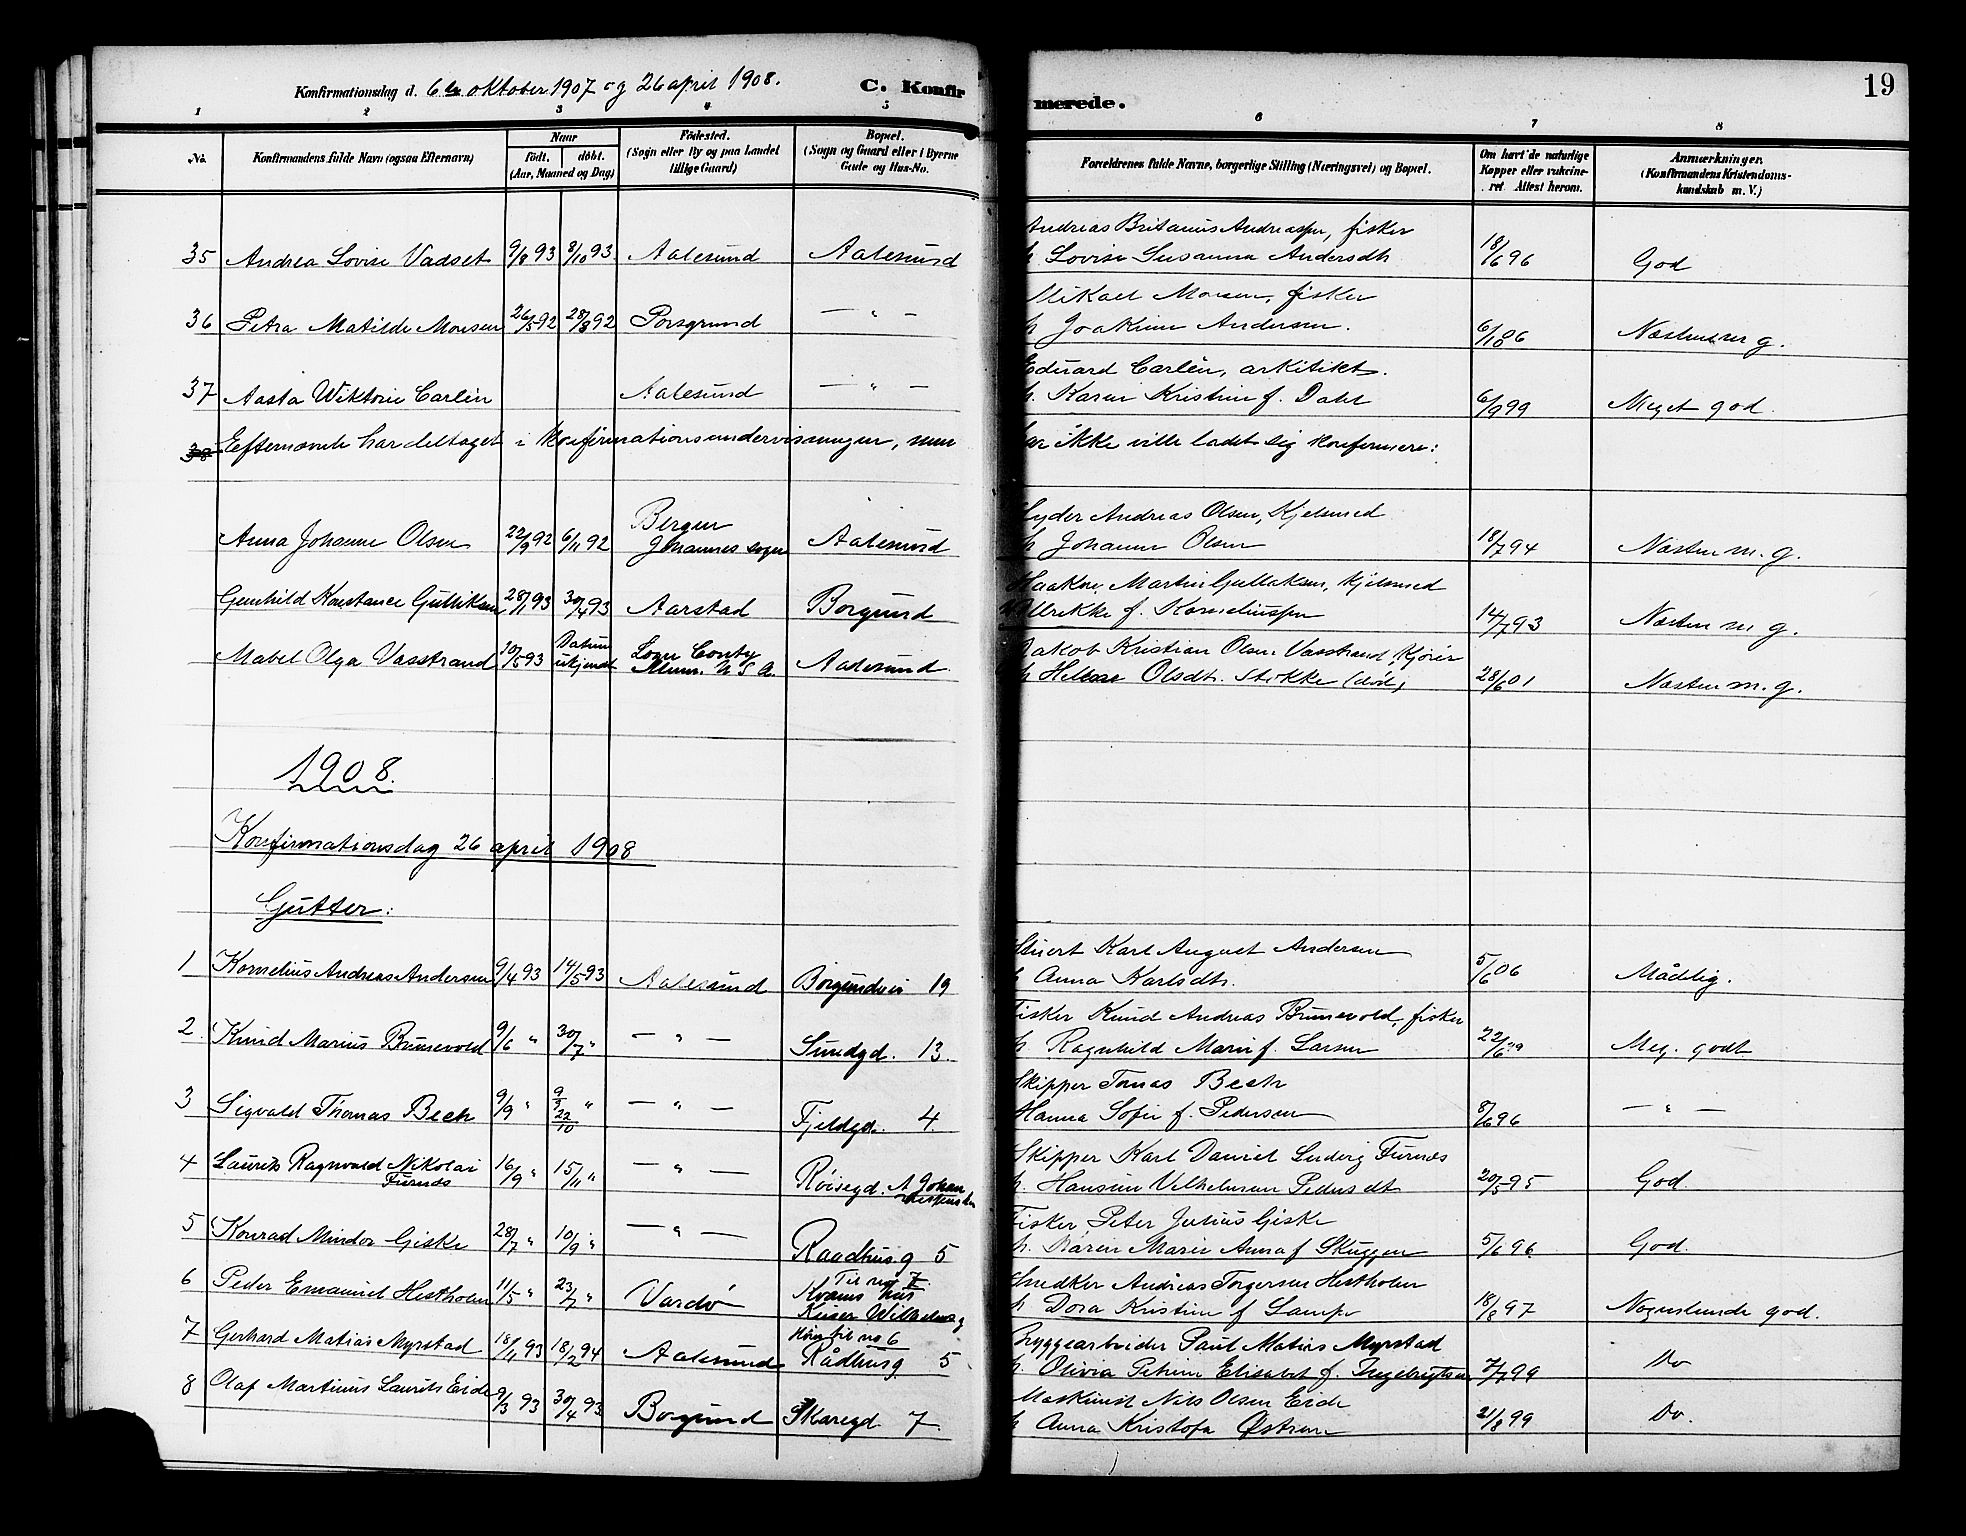 Konfirmationsdag d. 6te oktober 1907 og 26 april 1908. C. Konfir merede. 19
1 2 3 4 5 6 7 8
No. Konfirmandens fulde Navn (ogsaa Efternavn) Naar født. døbt. (Aar, Maaned og Dag) Fødested. (Sogn eller By og paa Landet tillige Gaard) Bopæl. (Sogn og Gaard eller i Byerne Gade og Hus-No. Forældrenes fulde Navne, borgerlige Stilling (Næringsvei) og Bopæl. Om havt de naturlige Kopper eller vakcineret. Attest herom. Anmærkninger. (Konfirmandens Kristendomskundskab m. V.)
Andreas Britanius Andreassen, fisker
35 Andrea Lovise Vadset 9/8 93 8/10 93 Aalesund Aalesund h. Lovise Susanna Andersdtr 18/6 96 God
Mikael Monsen, fisker
36 Petra Matilde Monsen 26/5 92 28/8 92 Porsgrund — " — h Joakime Andersen. 6/10 06 Næsten m g.
Eduard Carlén, arkitikt.
37 Aasta Wiktorie Carlén Aalesund — " — h. Karen Kristine f. Dahl 6/9 99 Meget god.
38 Efternævnte har deltaget i konfirmationsundervisningen, men har ikke ville ladet sig konfirmere:
Lyder Andreas Olsen, Kjelsmed
Anna Johanne Olsen 22/9 92 6/11 92 Bergen Johannes sogn Aalesund h Johanne Olsen 18/7 94 Næsten m. g.
Haakon Martin Gulliksen, kjelsmed
Gunhild Konstance Gulliksen 28/1 93 30/4 93 Aarstad Borgund h Ulrikke f. Korneliussen 14/7 93 Næsten m g.
Jakob Kristian Olsen Vasstrand, Kjører
Mabel Olga Vasstrand 30/5 93 Datum ukjendt U S A. Aalesund h Helene Olsdt. Stokke (død) 28/6 01 Næsten m. g.
1908.
Konfirmationsdag 26 april 1908
Gutter:
Stuert Karl August Andersen
1 Kornelius Andreas Andersen 9/4 93 14/5 93 Aalesund Borgundvei 19 h Anna Karlsdtr. 5/6 06 Mådelig.
Fisker Knud Andreas Brunevold, fisker
2. Knud Marius Brunevold 9/6 " 30/7 " — " — Sundgd. 13. h Ragnhild Marie f. Larsen 22/6 Meg. godt
Skipper Tomas Bech
3 Sigvald Thomas Bech 9/9 " 22/10 " — " — Fjeldgd. 4. Hanna Sofie f. Pedersen 8/6 96 — " —
Skipper Karl Daniel Ludvig Furnæs
4 Laurits Ragnvald Nikolai Furnæs 16/9 " 15/11 " — " — Røisegd. A. Johan h. Hansine Vilhelmine Pedersdt 20/5 95 God.
Fisker Peter Julius Giske
5 Konrad Mindor Giske 28/7 " 10/9 " — " — Raadhusg 5 h. Karen Marie Anna f Skuggen 5/6 96 God.
Snedker Andreas Torgersen Hestholm
6 Peder Emanuel Hestholm 11/5 " 23/7 " Vardø Til no 7 Kvams hus Keiser Wilhelmsg h Dora Kristine f Lampe 18/8 97 Nogenlunde god.
Bryggearbeider Paul Matias Myrstad
7 Gerhard Matias Myrstad 18/11 93 18/2 94 Aalesund Hører til no 6 Rådhusg 5 h. Olivia Petrine Elisabet f. Ingebrigtsen 7/7 99 Do
Maskinist Nils Olsen Eide
8 Olaf Martinus Laurits Eide 9/3 93 30/4 93 Borgund Skaregd 7. h Anna Kristofa Østrem 21/8 99 Do.